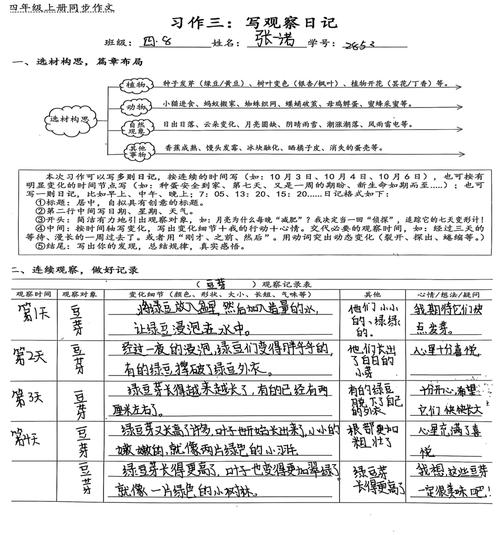 四年级上册同步作文
习作三：写观察日记
班级：四.8 姓名：张诺 学号：2853
一、选材构思，篇章布局
选材构思
植物 种子发芽（绿豆/黄豆）、树叶变色（银杏/枫叶）、植物开花（昙花/丁香）等。
动物 小猫进食、蚂蚁搬家、蜘蛛织网、蝶蛹破茧、母鸡孵蛋、蜜蜂采蜜等。
自然现象 日出日落、云朵变化、月亮圆缺、阴晴雨雪、潮涨潮落、风雨雷电等。
其他事物 香蕉成熟、馒头发霉、冰块融化、晒橘子皮、消失的蛋壳等。
本次习作可以写多则日记，按连续的时间写（如：10月3日、10月4日、10月6日），也可按有
明显变化的时间节点写（如：种蛋安全到家、第七天、又是一周的期盼、新生命如期而至……）；也可
写一则日记，比如早上、中午、晚上；7：05、13：20、15：20……日记格式如下：
①标题：居中，自拟具有创意的标题。
②第二行中间写日期、星期、天气。
③开头：简洁有力地引出观察对象，如：月亮为什么每晚“减肥”？我决定当一回“侦探”，追踪它的七天变形计！
④中间：按时间轴写变化，写出变化细节＋我的行动＋心情。交代必要的观察时间，如：经过三天的
等待、漫长的一周过去了。或者用“刚才、之前、然后”。用动词突出动态变化（裂开、探出、蜷缩等。）
⑤结尾：写出你的发现，总结规律，真实感悟。
二、连续观察，做好记录
（豆芽）观察记录表
观察时间 观察对象 变化细节（颜色、形状、大小、长短、气味等） 其他 心情/想法/疑问
第1天 豆芽 将绿豆放入盆里，然后加入适量的水，让绿豆浸泡在水中。 他们小小的、绿绿的。 我期待它们快点发芽。
第2天 豆芽 经过一夜的浸泡，绿豆们变得胖乎乎的，有的绿豆撑破了绿豆外衣。 他们长出了白白的小芽 心里十分喜悦
第3天 豆芽 绿豆芽长得越来越长了，有的已经有两厘米左右了。 有的绿豆脱下了自己的外衣 十分开心，希望它们快快长大
第4天 豆芽 绿豆芽又长高了许多，叶子也开始长出来了，小小的嫩嫩的，就像两片绿色的小羽毛 根部更加粗壮了 心里充满了喜悦
豆芽 绿豆芽长得更高了，叶子也变得更加翠绿了就像一片绿色的小树林。 绿豆芽长得更高了 我想这些豆芽一定很美味吧！